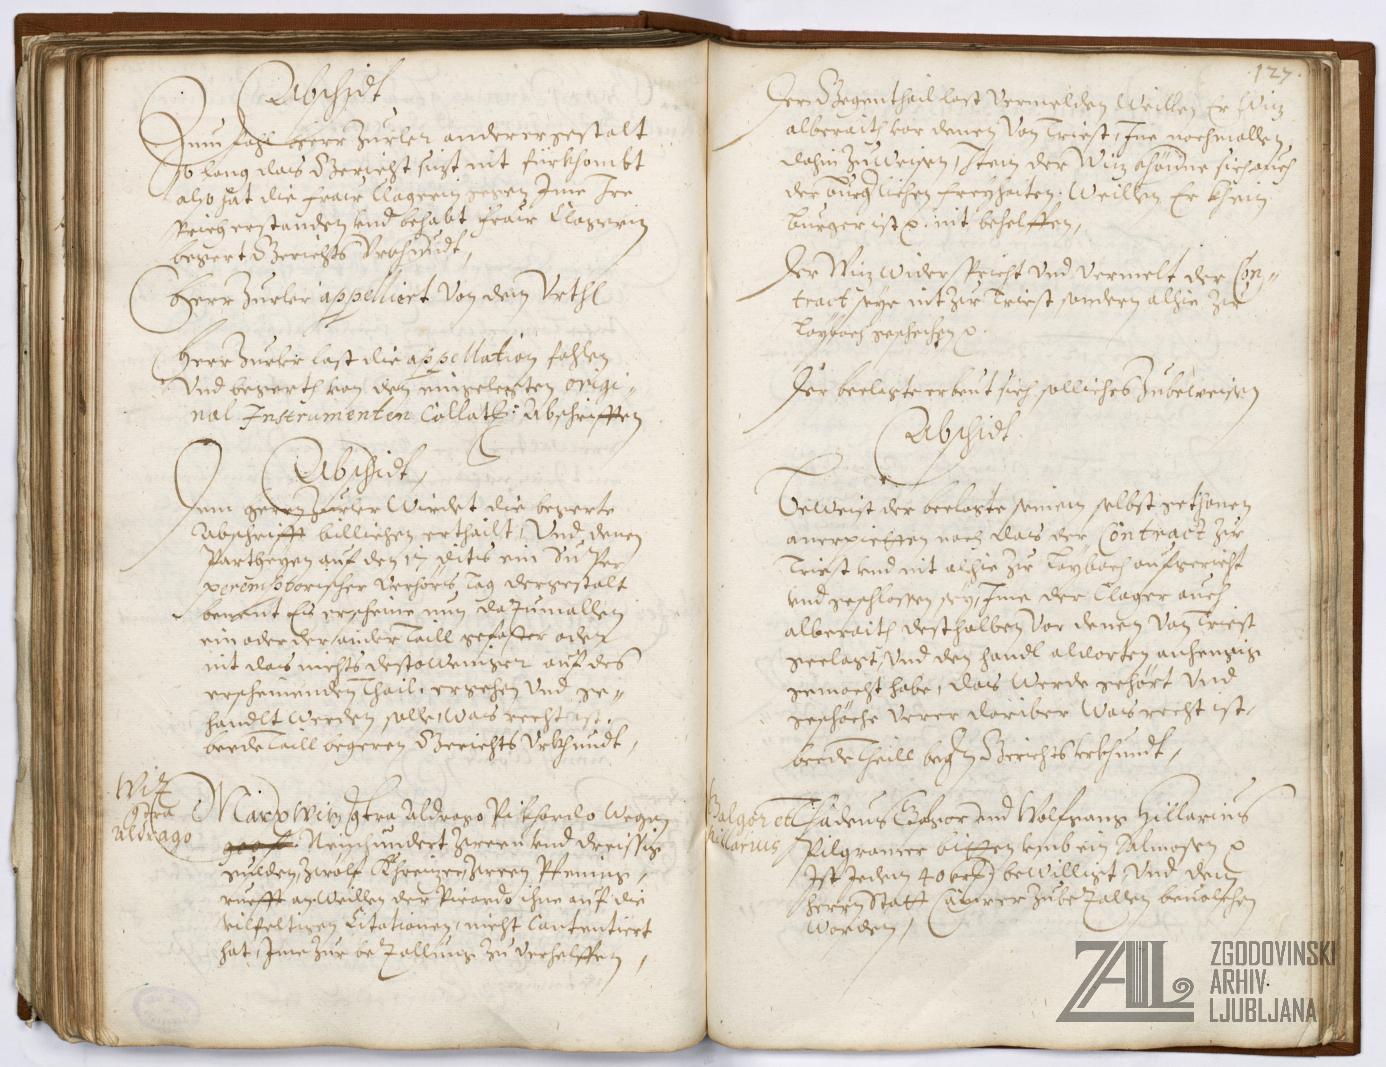 Abschidt
Zum fahl Herr Zurler anderergestalt
so lang das Gericht sizt nit fürkhombt
also hat die fraw Clagerin gegen Ime Ire
erstanden und behabt fraw Clagerin
begert Gerichts Urkhundt,
Herr Zurler appelliert von dem Urthl
Herr Zurler last die appellation fahlen
Und begerth von den eingelegten origi„
nal Instrumenten Collat: Abschrifften
Abschidt,
Dem herrn Zurler Wirdet die begerte
Abschrifft billichen ertheilt, Und denen
Partheyen auf den 17 ditis ein Su Per
peremptorischer verhörs Tag dergestalt
benent Es erscheine nun dazumallen
ein oder der ander Taill gefaster oder
nit das nichts destoweniger auf des
erscheinenden Thail ergehen Und ge„
handlt Werden solle, Was recht ist.
beede Taill begeren Gerichts Urkhundt,
Wiz
contra
Aldrago
Marx Wiz contra Aldrago Pikhardo Wegen
Neinhundert Zween und dreissig
gulden, Zwölf Khreuzer, Zween Pfening,
ruefft an Weillen der Picardo ihne auf die
vilfeltigen Citationen, nicht Contentiert
hat, Ime zur bezallung zu verhelffen,
127.
Der Gegenthail last vermelden Weillen Er Wiz
alberaith vor denen von Triest, Ine nochmallen
dahin zuweisen, Item der Wiz khönne sich auch
der burgerlichen freyheiten, Weillen Er khein
burger ist nit behelffen,
Der Wiz widerspricht Und vermelt der Con„
tract seye nit zu Triest sondern alhie zu
Laybach geschehen
Der beclagte erbeut sich solliches zubeweisen
Abschidt.
Beweist der beclagte seinem selbst gethonen
anerpietten nach das der Contract zu
Triest und nit alhie zu Laybach aufgericht
und geschlossen sey, Ime der Clager auch
alberaith desthalben vor denen von Triest
geclagt, Und den handl aldorten anhengig
gemacht habe, Das Werde gehört Und
geschehe verer darüber Was recht ist.
beede Theill begern Gerichts Urkhundt,
Balgor et
hillarius
Thadeus Balgor und Wolfgang Hillarius
Pilgramer bitten umb ein Almosen
Ist Jedem 40 bewilligt, Und dem
herrn Statt Camrer zubezallen bevolchen
Worden,
ZAL
ZGODOVINSKI
ARHIV
LJUBLJANA